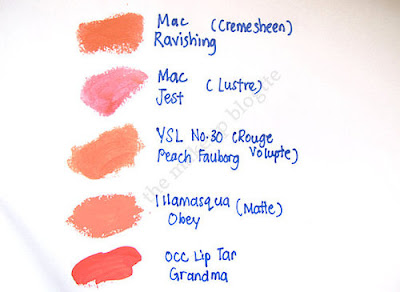 Mac (Cremesheen)
Ravishing
Mac (Lustre)
Jest
YSL No.30 (Rouge
Peach Fauborg Volupte)
Illamasqua (Matte)
Obey
OCC Lip Tar
Grandma
the makeup blogette